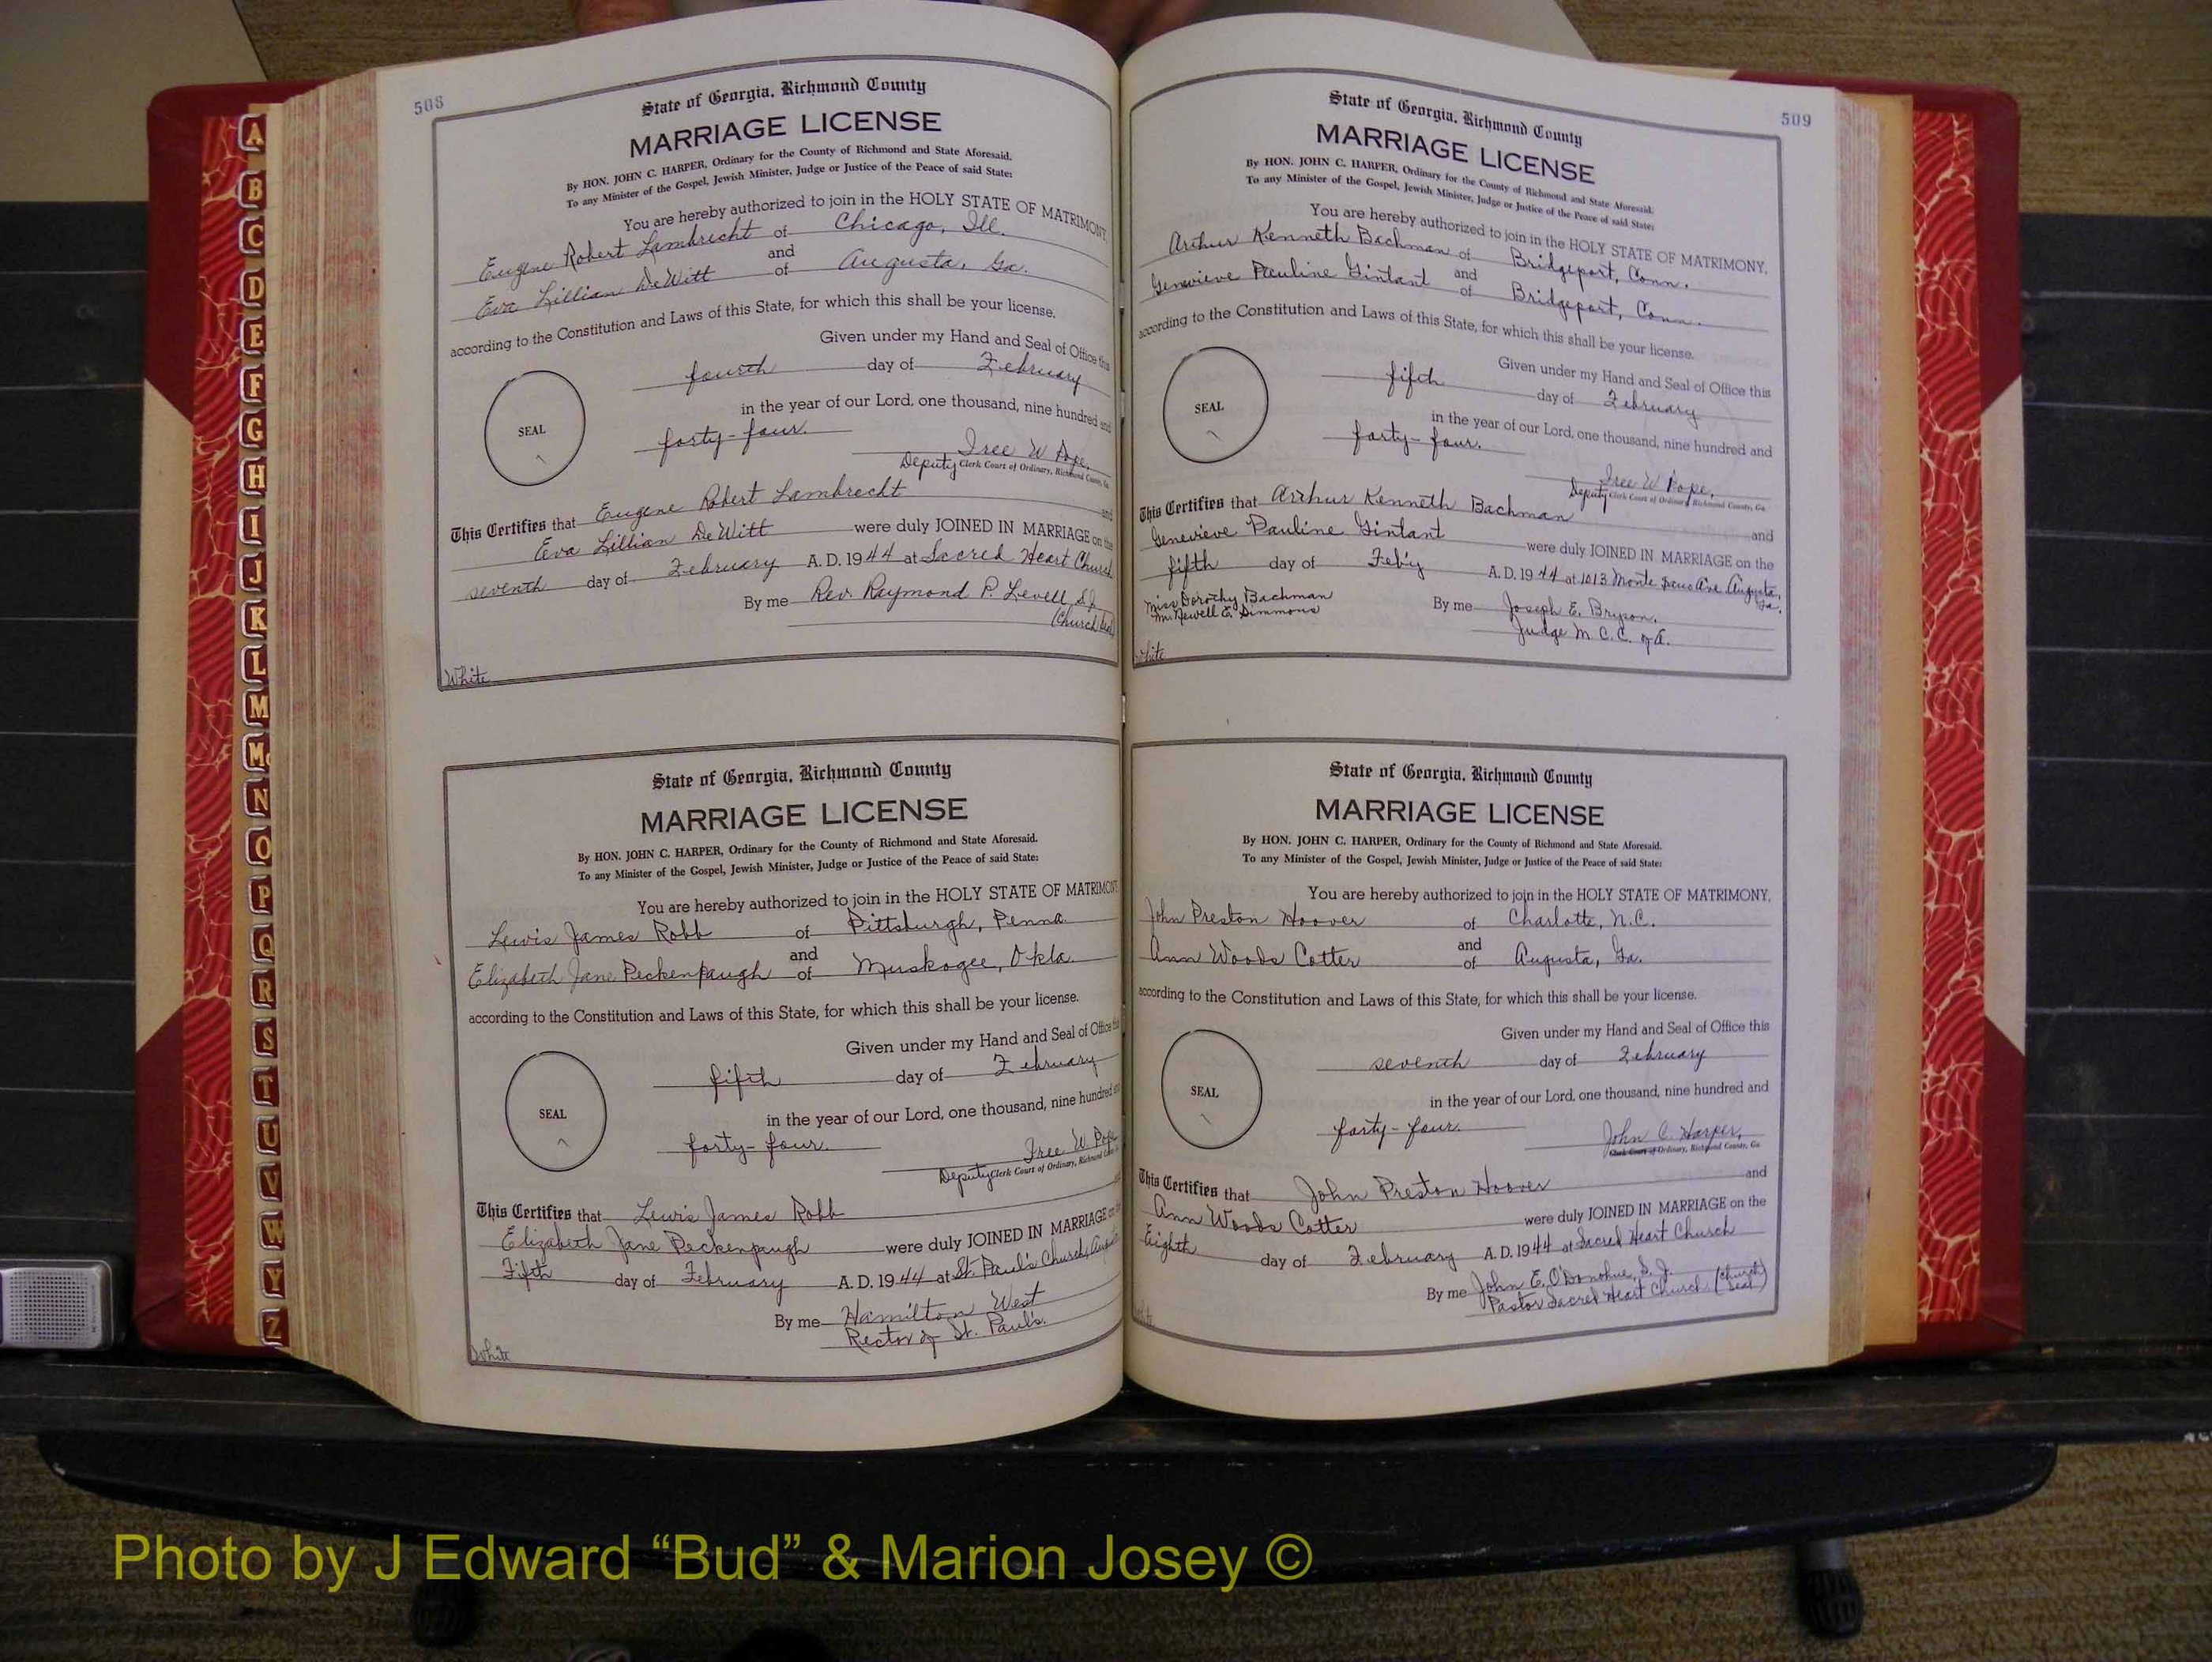 A
B
C
D
E
F
G
H
I
J
K
L
M
Mc
N
O
P
Q
R
S
T
U
V
W
Y
Z
508
State of Georgia, Richmond County
MARRIAGE LICENSE
By HON. JOHN C. HARPER, Ordinary for the County of Richmond and State Aforesaid.
To any Minister of the Gospel, Jewish Minister, Judge or Justice of the Peace of said State:
You are hereby authorized to join in the HOLY STATE OF MATRIMONY,
Eugene Robert Lambrecht of Chicago, Ill.
and
Eva Lillian DeWitt of Augusta, Ga.
according to the Constitution and Laws of this State, for which this shall be your license.
Given under my Hand and Seal of Office this
fourth day of February
in the year of our Lord, one thousand, nine hundred and
SEAL
forty-four.
Iree W Pope,
Deputy Clerk Court of Ordinary, Richmond County, Ga.
This Certifies that Eugene Robert Lambrecht and
Eva Lillian DeWitt were duly JOINED IN MARRIAGE on the
seventh day of February A. D. 1944 at Sacred Heart Church
By me Rev. Raymond P. Levell S.J.
(Church Seal)
White
State of Georgia, Richmond County
MARRIAGE LICENSE
By HON. JOHN C. HARPER, Ordinary for the County of Richmond and State Aforesaid.
To any Minister of the Gospel, Jewish Minister, Judge or Justice of the Peace of said State:
You are hereby authorized to join in the HOLY STATE OF MATRIMONY
Lewis James Robb of Pittsburgh, Penna.
and
Elizabeth Jane Peckenpaugh of Muskogee, Okla.
according to the Constitution and Laws of this State, for which this shall be your license.
Given under my Hand and Seal of Office this
fifth day of February
in the year of our Lord, one thousand, nine hundred and
SEAL
forty-four.
Iree W Pope
Deputy Clerk Court of Ordinary, Richmond County
This Certifies that Lewis James Robb
Elizabeth Jane Peckenpaugh were duly JOINED IN MARRIAGE on the
Fifth day of February A. D. 1944 at St. Paul's Church, Augusta
By me Hamilton West
Rector of St. Paul's.
White
509
State of Georgia, Richmond County
MARRIAGE LICENSE
By HON. JOHN C. HARPER, Ordinary for the County of Richmond and State Aforesaid.
To any Minister of the Gospel, Jewish Minister, Judge or Justice of the Peace of said State:
You are hereby authorized to join in the HOLY STATE OF MATRIMONY,
Arthur Kenneth Bachman of Bridgeport, Conn.
and
Genevieve Pauline Gintant of Bridgeport, Conn.
according to the Constitution and Laws of this State, for which this shall be your license.
Given under my Hand and Seal of Office this
fifth day of February
in the year of our Lord, one thousand, nine hundred and
SEAL
forty-four.
Iree W Pope,
Deputy Clerk Court of Ordinary, Richmond County, Ga.
This Certifies that Arthur Kenneth Bachman and
Genevieve Pauline Gintant were duly JOINED IN MARRIAGE on the
fifth day of Feb'y A. D. 1944 at 1013 Monte Sano Ave Augusta, Ga.
Miss Dorothy Bachman
Mr. Newell E. Simmons
By me Joseph E. Bryson.
Judge M. C. C. of A.
White
State of Georgia, Richmond County
MARRIAGE LICENSE
By HON. JOHN C. HARPER, Ordinary for the County of Richmond and State Aforesaid.
To any Minister of the Gospel, Jewish Minister, Judge or Justice of the Peace of said State:
You are hereby authorized to join in the HOLY STATE OF MATRIMONY,
John Preston Hoover of Charlotte, N.C.
and
Ann Woods Cotter of Augusta, Ga.
according to the Constitution and Laws of this State, for which this shall be your license.
Given under my Hand and Seal of Office this
seventh day of February
in the year of our Lord, one thousand, nine hundred and
SEAL
forty-four.
John C. Harper,
Clerk Court of Ordinary, Richmond County, Ga.
This Certifies that John Preston Hoover and
Ann Woods Cotter were duly JOINED IN MARRIAGE on the
Eighth day of February A. D. 1944 at Sacred Heart Church
By me John E. O'Donohue, S. J.
Pastor Sacred Heart Church. (Church Seal)
White
Photo by J Edward “Bud” & Marion Josey ©